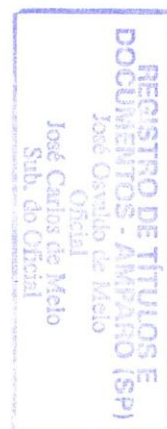 REGISTRO DE TÍTULOS E
DOCUMENTOS - AMPARO (SP)
José Osvaldo de Melo
Oficial
José Carlos de Melo
Sub. do Oficial